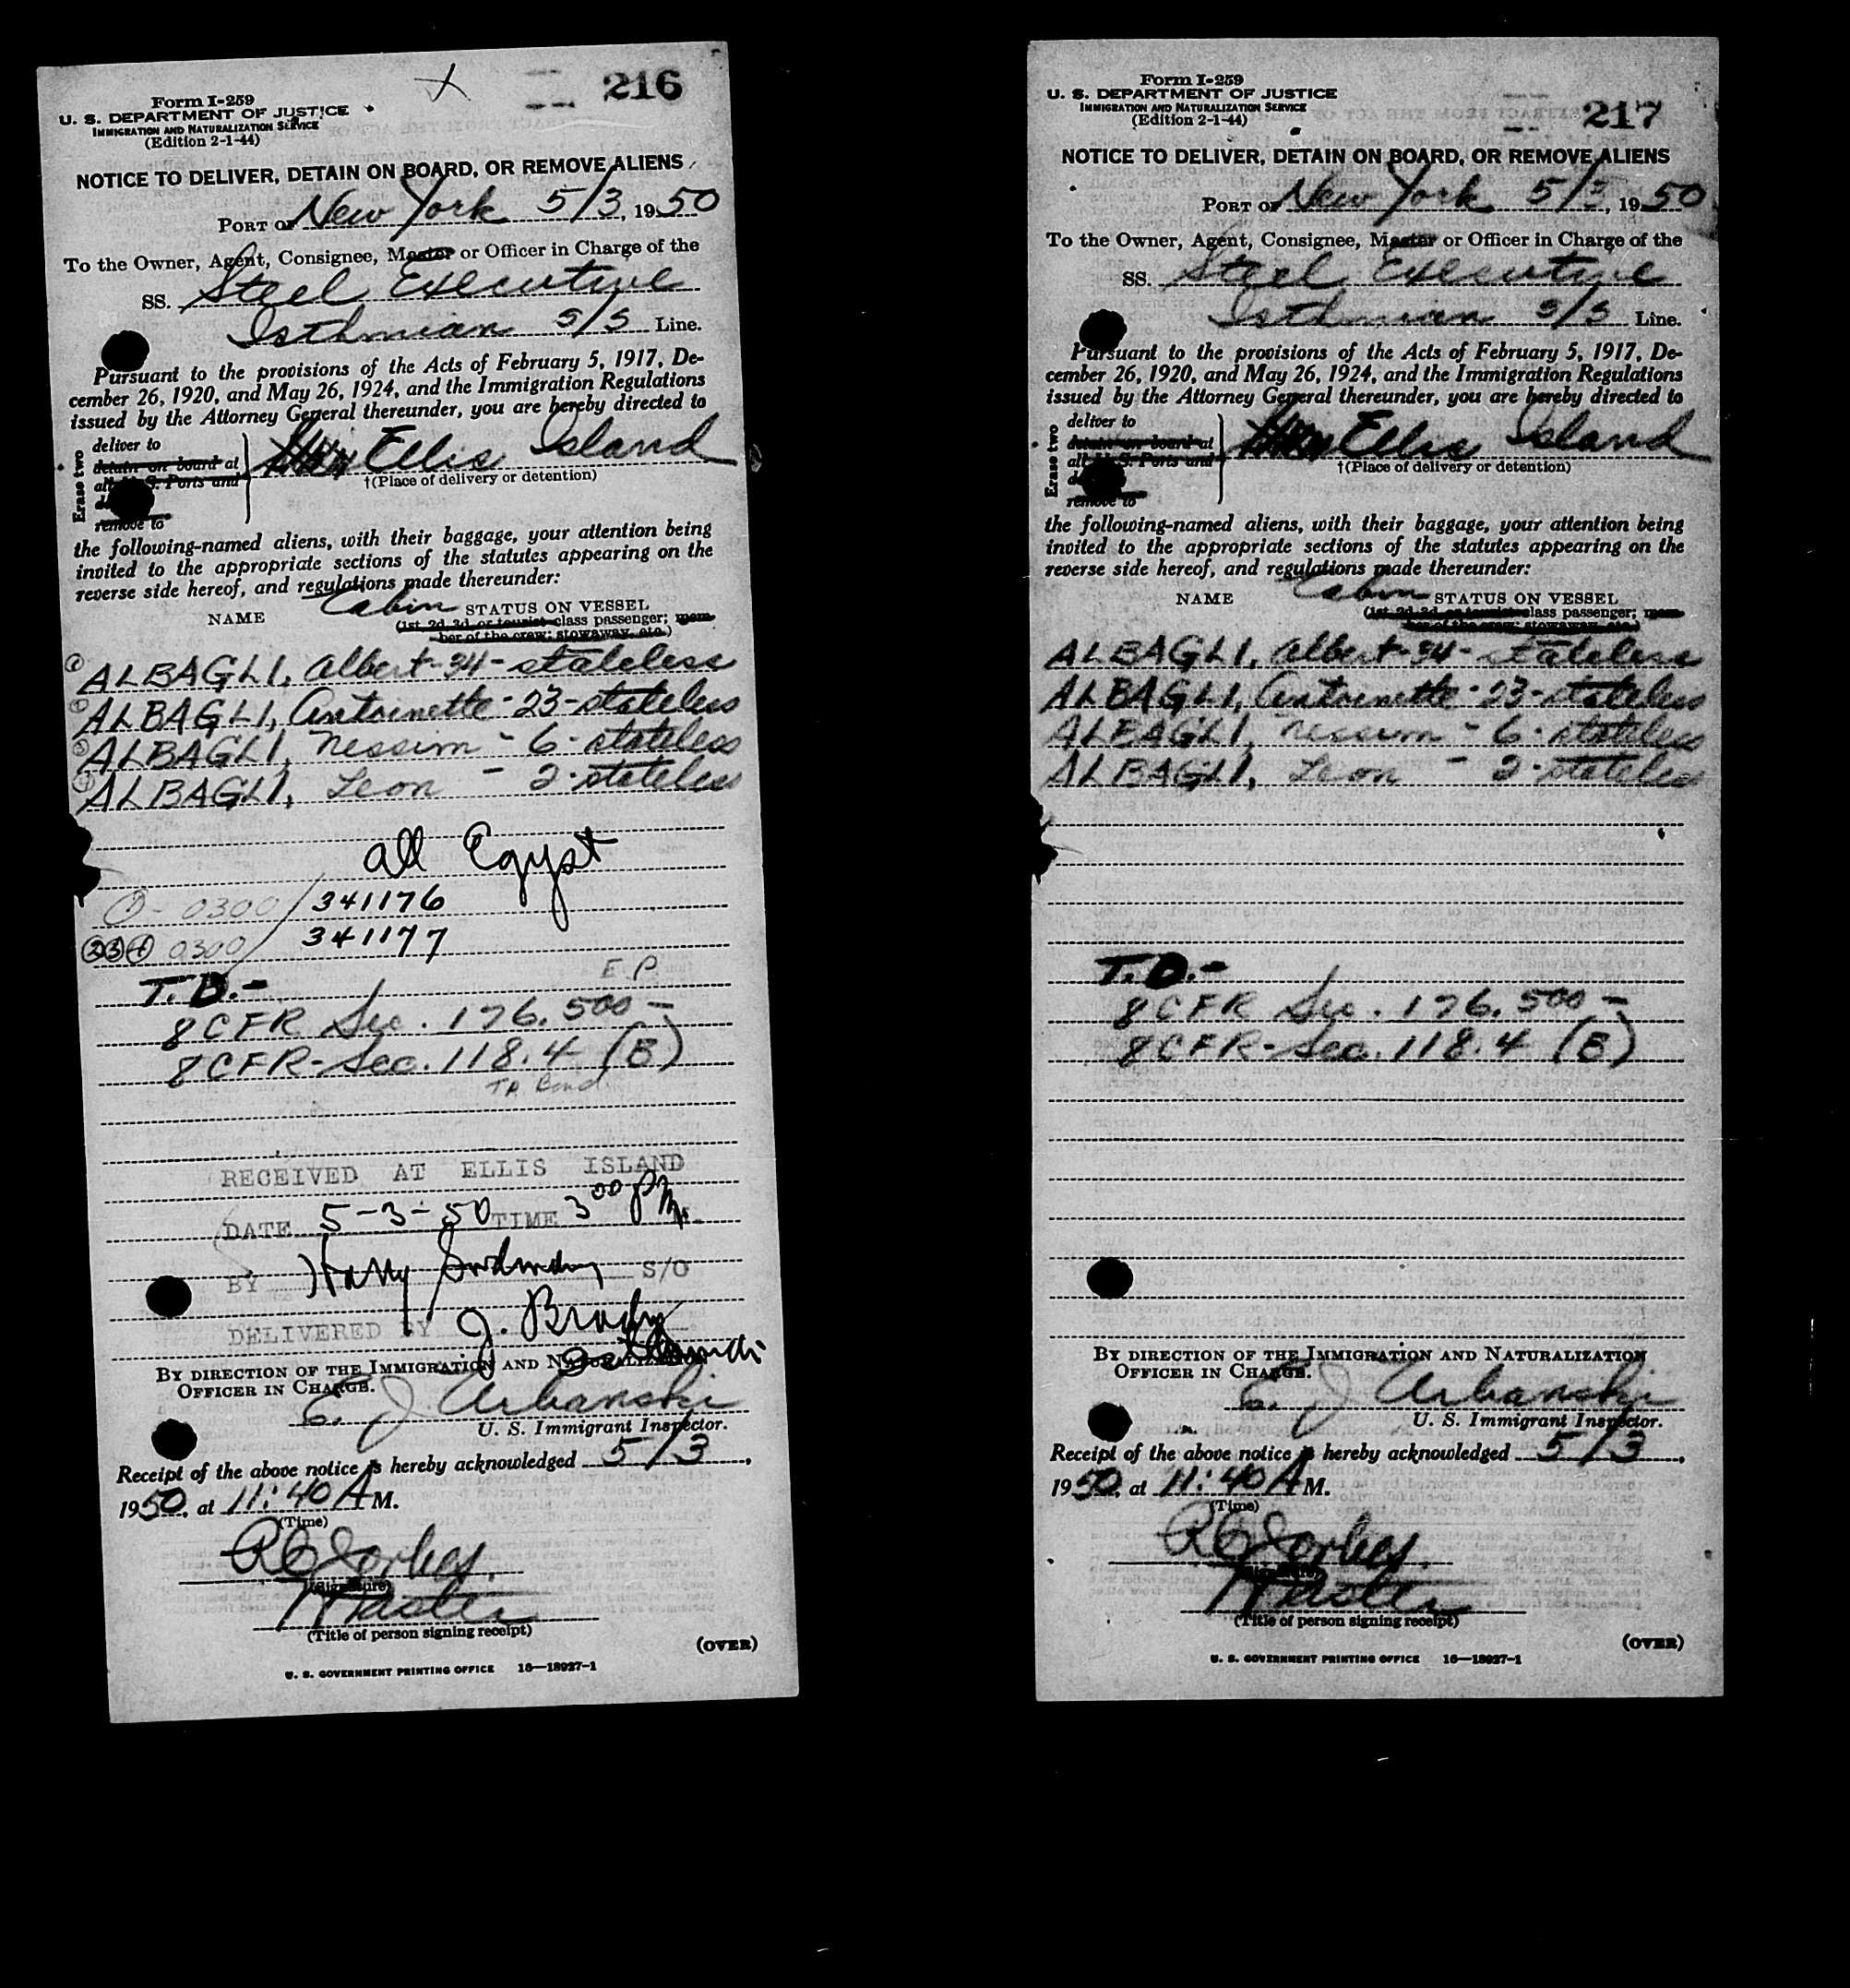 216
Form I-259
U. S. DEPARTMENT OF JUSTICE
IMMIGRATION AND NATURALIZATION SERVICE
(Edition 2-1-44)
NOTICE TO DELIVER, DETAIN ON BOARD, OR REMOVE ALIENS
PORT OF New York 5/3, 1950
To the Owner, Agent, Consignee, Master or Officer in Charge of the
SS. Steel Executive
Isthmian S/S Line.
Pursuant to the provisions of the Acts of February 5, 1917, De-
cember 26, 1920, and May 26, 1924, and the Immigration Regulations
issued by the Attorney General thereunder, you are hereby directed to
Erase two
deliver to
detain on board at
all U. S. Ports and
remove to
Ellis Island
†(Place of delivery or detention)
the following-named aliens, with their baggage, your attention being
invited to the appropriate sections of the statutes appearing on the
reverse side hereof, and regulations made thereunder:
NAME Cabin STATUS ON VESSEL
(1st, 2d, 3d, or tourist-class passenger; mem-
ber of the crew; stowaway, etc.)
① ALBAGLI, Albert - 34 - stateless
② ALBAGLI, Antoinette - 23 - stateless
③ ALBAGLI, Nessim - 6 - stateless
④ ALBAGLI, Leon - 2 - stateless
all Egypt
① - 0300/341176
②③④ 0300/ 341177
T.D.- E P
8 CFR Sec. 176.500 -
8 CFR - Sec. 118.4 (B)
TR Bond
RECEIVED AT ELLIS ISLAND
DATE 5-3-50 TIME 3 00 PM.
BY Harry S/O
DELIVERED BY J. Brady
BY DIRECTION OF THE IMMIGRATION AND NATURALIZATION
OFFICER IN CHARGE.
E. J. Urbanski
U. S. Immigrant Inspector.
Receipt of the above notice is hereby acknowledged 5/3,
1950, at 11:40 A M.
(Time)
(Signature)
Master
(Title of person signing receipt)
(OVER)
U. S. GOVERNMENT PRINTING OFFICE 16—18927-1
217
Form I-259
U. S. DEPARTMENT OF JUSTICE
IMMIGRATION AND NATURALIZATION SERVICE
(Edition 2-1-44)
NOTICE TO DELIVER, DETAIN ON BOARD, OR REMOVE ALIENS
PORT OF New York 5/3, 1950
To the Owner, Agent, Consignee, Master or Officer in Charge of the
SS. Steel Executive
Isthmian S/S Line.
Pursuant to the provisions of the Acts of February 5, 1917, De-
cember 26, 1920, and May 26, 1924, and the Immigration Regulations
issued by the Attorney General thereunder, you are hereby directed to
Erase two
deliver to
detain on board at
all U. S. Ports and
remove to
Ellis Island
†(Place of delivery or detention)
the following-named aliens, with their baggage, your attention being
invited to the appropriate sections of the statutes appearing on the
reverse side hereof, and regulations made thereunder:
NAME Cabin STATUS ON VESSEL
(1st, 2d, 3d, or tourist-class passenger; mem-
ber of the crew; stowaway, etc.)
ALBAGLI, Albert - 34 - stateless
ALBAGLI, Antoinette - 23 - stateless
ALBAGLI, Nessim - 6 - stateless
ALBAGLI, Leon - 2 - stateless
T.D.-
8 CFR Sec. 176.500 -
8 CFR - Sec. 118.4 (B)
BY DIRECTION OF THE IMMIGRATION AND NATURALIZATION
OFFICER IN CHARGE.
E. J. Urbanski
U. S. Immigrant Inspector.
Receipt of the above notice is hereby acknowledged 5/3,
1950, at 11:40 A M.
(Time)
(Signature)
Master
(Title of person signing receipt)
(OVER)
U. S. GOVERNMENT PRINTING OFFICE 16—18927-1